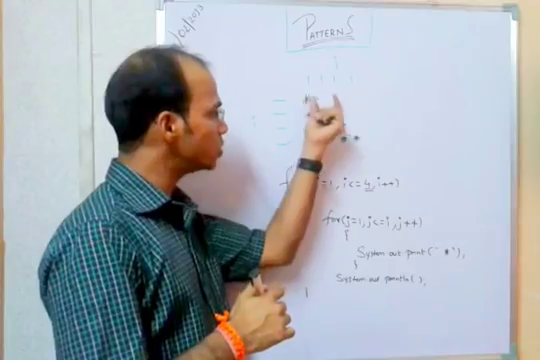 /02/2013
PATTERNS
=1, i<=4, i++)
for(j=1, j<=i, j++)
{
System out print("*");
}
System out println( );
}